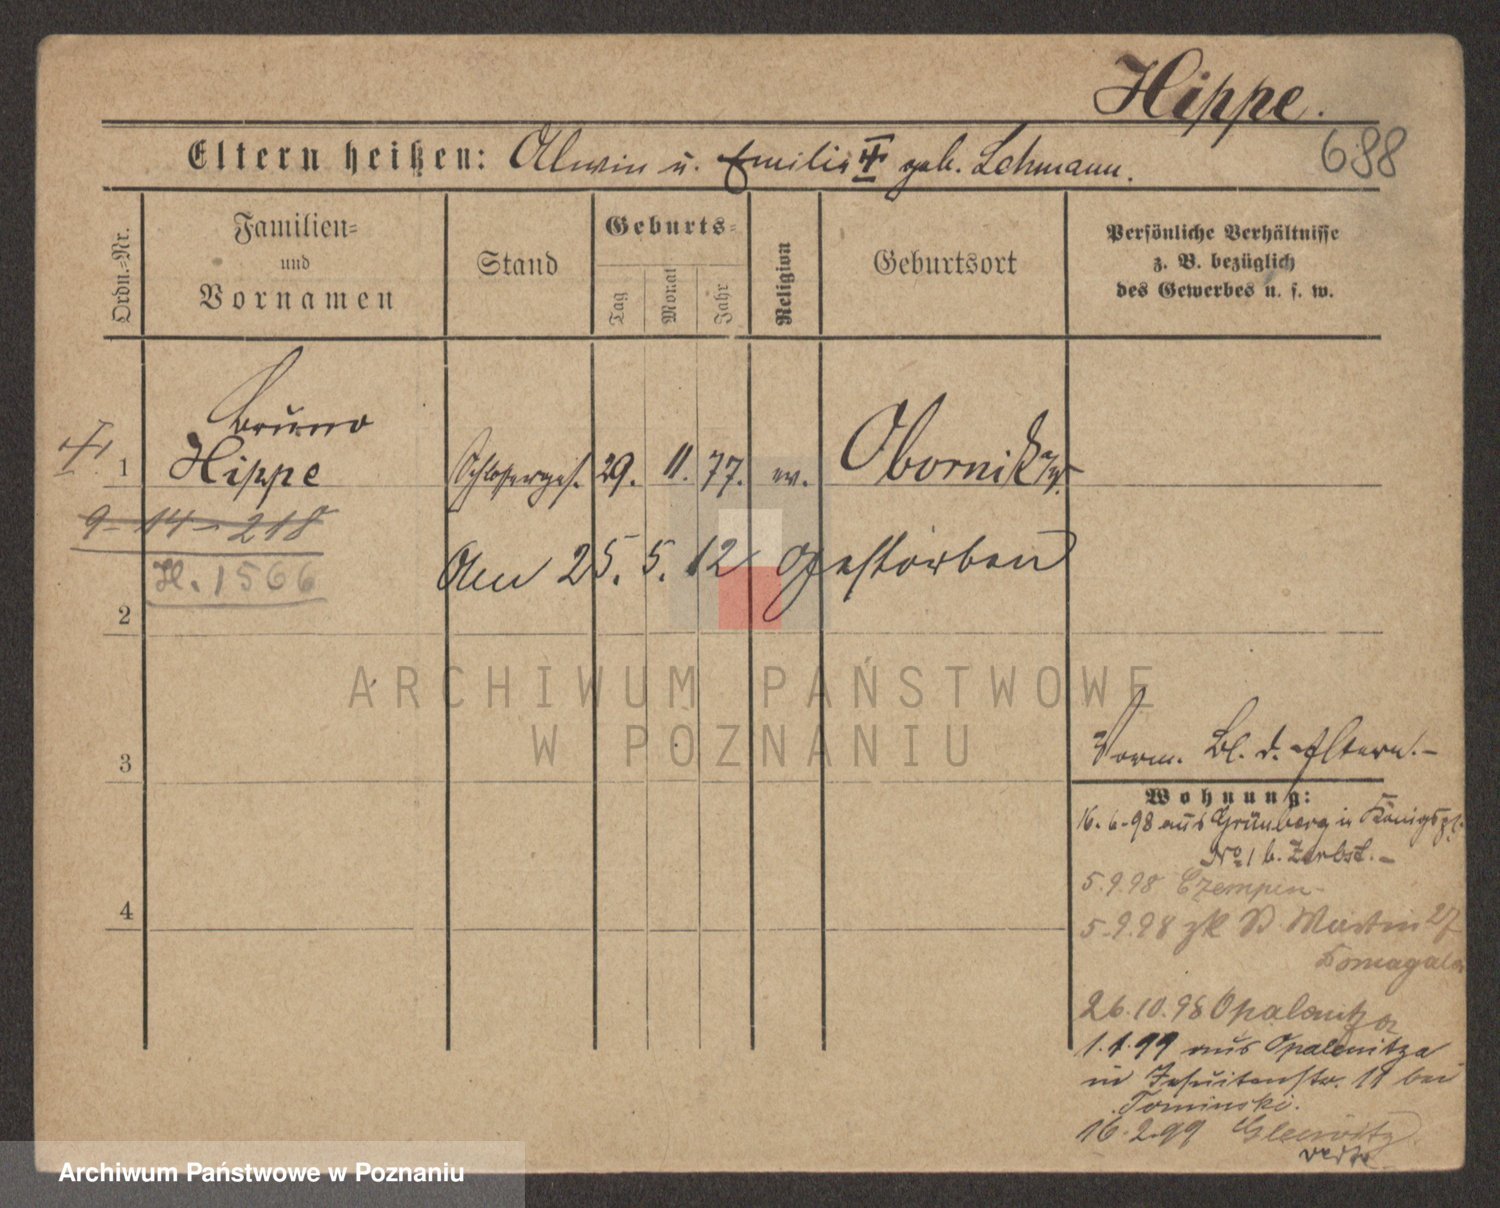 Hippe.
688
Eltern heißen: Alwin u. Emilie geb. Lehmann.
Ordn.-Nr.
Familien-
und
Vornamen
Stand
Geburts-
Tag
Monat
Jahr
Religion
Geburtsort
Persönliche Verhältnisse
z. B. bezüglich
des Gewerbes u. s. w.
Bruno
1 Hippe Schlosserges. 29. 11. 77. ev. Obornik
9-14-218
H. 1566
Am 25. 5. 12 gestorben
2
ARCHIWUM PAŃSTWOWE
W POZNANIU
3
Vorm. Bl. d. Eltern.-
Wohnung:
16.6.98 aus Grünberg in Königspl.
No 1 b. Zerbst.-
5.9.98 Czempin-
5.9.98 zk St Martin 27
Domagala
4
26.10.98 Opalenitza
1.1.99 aus Opalenitza
in Jesuitenstr. 11 bei
Tominski.
16.2.99 Gleiwitz
Archiwum Państwowe w Poznaniu